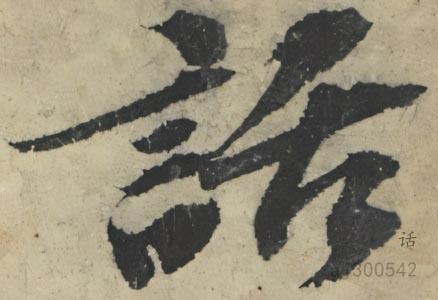 話
话
300542